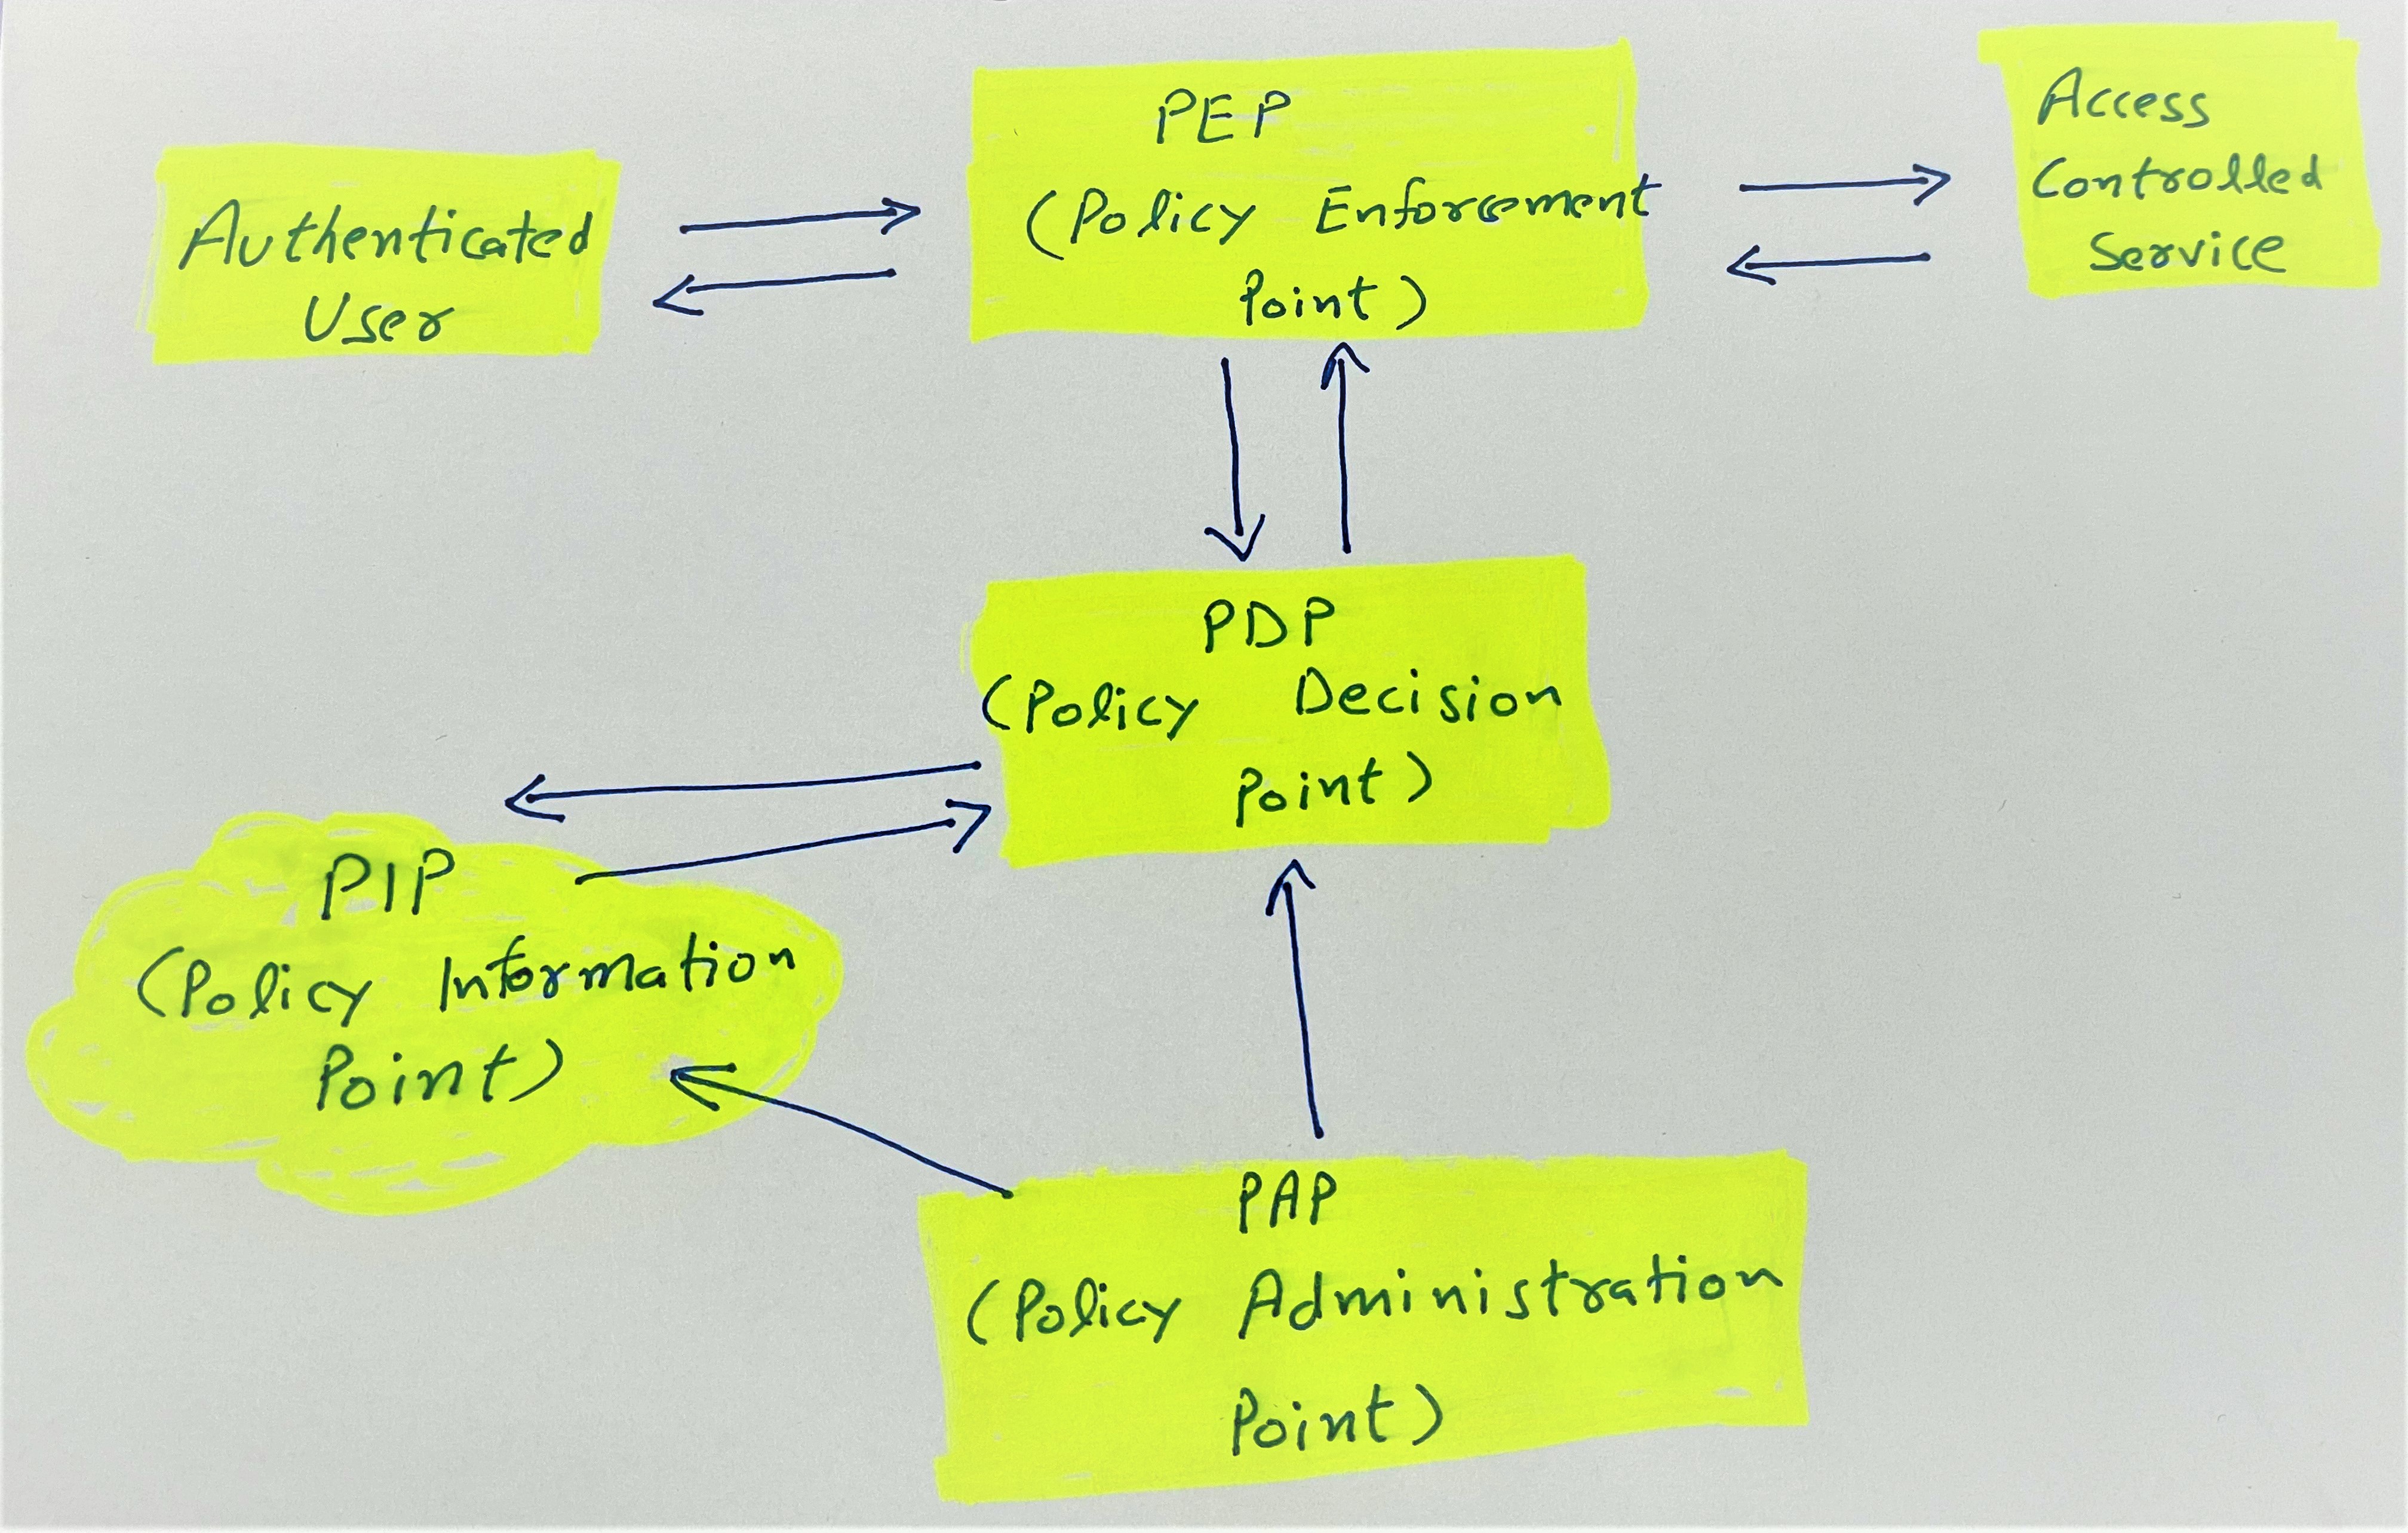 Authenticated
User
PEP
(Policy Enforcement
Point)
Access
Controlled
Service
PDP
(Policy Decision
Point)
PIP
(Policy Information
Point)
PAP
(Policy Administration
Point)